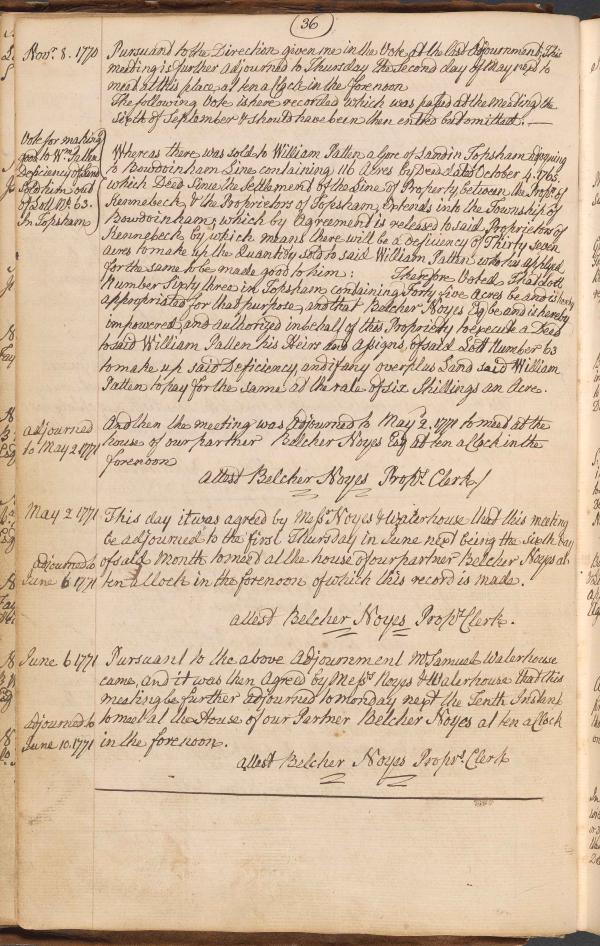 36
Novr. 8. 1770
Pursuant to the Direction given me in the Vote at the last Adjournment, This
meeting is further adjourned to Thursday the Second day of May next to
meet at this place at ten a Clock in the forenoon
The following Vote is here recorded which was passed at the meeting the
sixth of September & should have been then entred but omitted. —
Vote for making
good to Wm. Patten
Deficiency of Land
Sold him out
of Lott No. 63.
In Topsham
Whereas there was sold to William Patten a Gore of Land in Topsham adjoyning
to Bowdoinham Line containing 110 Acres by Deed dated October 4. 1765.
which Deed Since the Settlement of the Line of Property between the Proprs. of
Kennebeck, & the Proprietors of Topsham, Extends into the Township of
Bowdoinham, which by Agreement is released to said Proprietors of
Kennebeck by which means there will be a Deficiency of Thirty Seven
Acres to make up the Quantity sold to said William Patten who has applyed
for the same to be made good to him: Therefore Voted That Lott
Number Sixty three in Topsham containing Forty five Acres be and is hereby
appropriated for that purpose, and that Belcher Noyes Esq be and is hereby
impowered and authorized in behalf of this Propriety to execute a Deed
to said William Patten his Heirs and assigns of said Lott Number 63
to make up said Deficiency, and if any overplus Land said William
Patten to pay for the same at the rate of six Shillings an Acre.
adjourned
to May 2 1771
And then the meeting was Adjourned to May 2. 1771 to meet at the
house of our partner Belcher Noyes Esq at ten a Clock in the
forenoon
attest Belcher Noyes Proprs. Clerk/
May 2 1771
This day it was agreed by Messrs Noyes & Waterhouse that this meeting
be adjourned to the first Thursday in June next being the Sixth day
adjourned to
of said Month to meet at the house of our partner Belcher Noyes at
June 6 1771
ten a Clock in the forenoon of which this record is made.
attest Belcher Noyes Proprs. Clerk.
June 6 1771
Pursuant to the above Adjournment Mr Samuel Waterhouse
came, and it was then Agreed by Messrs Noyes & Waterhouse That this
meeting be further adjourned to Monday next the Tenth Instant
adjourned to
to meet at the House of our Partner Belcher Noyes at ten a Clock
June 10. 1771
in the forenoon.
attest Belcher Noyes Proprs. Clerk